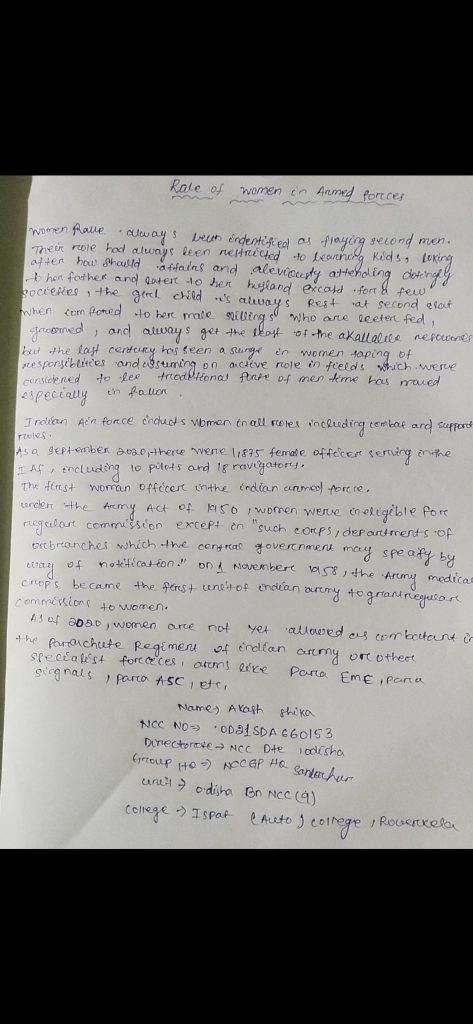 Role of women in Armed Forces
women have always been indentified as playing second men.
Their role had always been restricted to Learning Kids, loking
after how should affairs and aleviously attending dotingly
to her father and later to her husband except for a few
societies, the girl child is always kept at second slat
when compared to her male sillings who are beeter fed,
groomed, and always get the least of the available resources
but the last century has seen a surge in women taping of
responsiblities and assuming on active role in fields which were
considered to be traditional forte of men time has moved
especially in
Indian Air force inducts women in all roles including combat and support
roles.
As a September 2020, there were 1,875 female officer serving in the
IAF, including 10 pilots and 18 navigators.
The first woman officer in the indian armed force.
under the Army Act of 1950, women were ineligible for
regular commission except in "such corps, departments of
or branches which the central government may specify by
way of notification." on 1 November 1958, the Army medical
crops became the first unit of indian army to grant regular
commissions to women.
As of 2020, women are not yet allowed as combatant in
the Parachute Regiment of indian army or other
specialist forces, arms like Para EME, Para
signals, para ASC, etc,
Name→ Akash shika
NCC NO→ OD21SDA660153
Directorate→ NCC Dte, odisha
Group HQ→ NCC GP HQ
unit→ odisha Bn NCC (9)
College→ Ispat (Auto) college, Rourkela